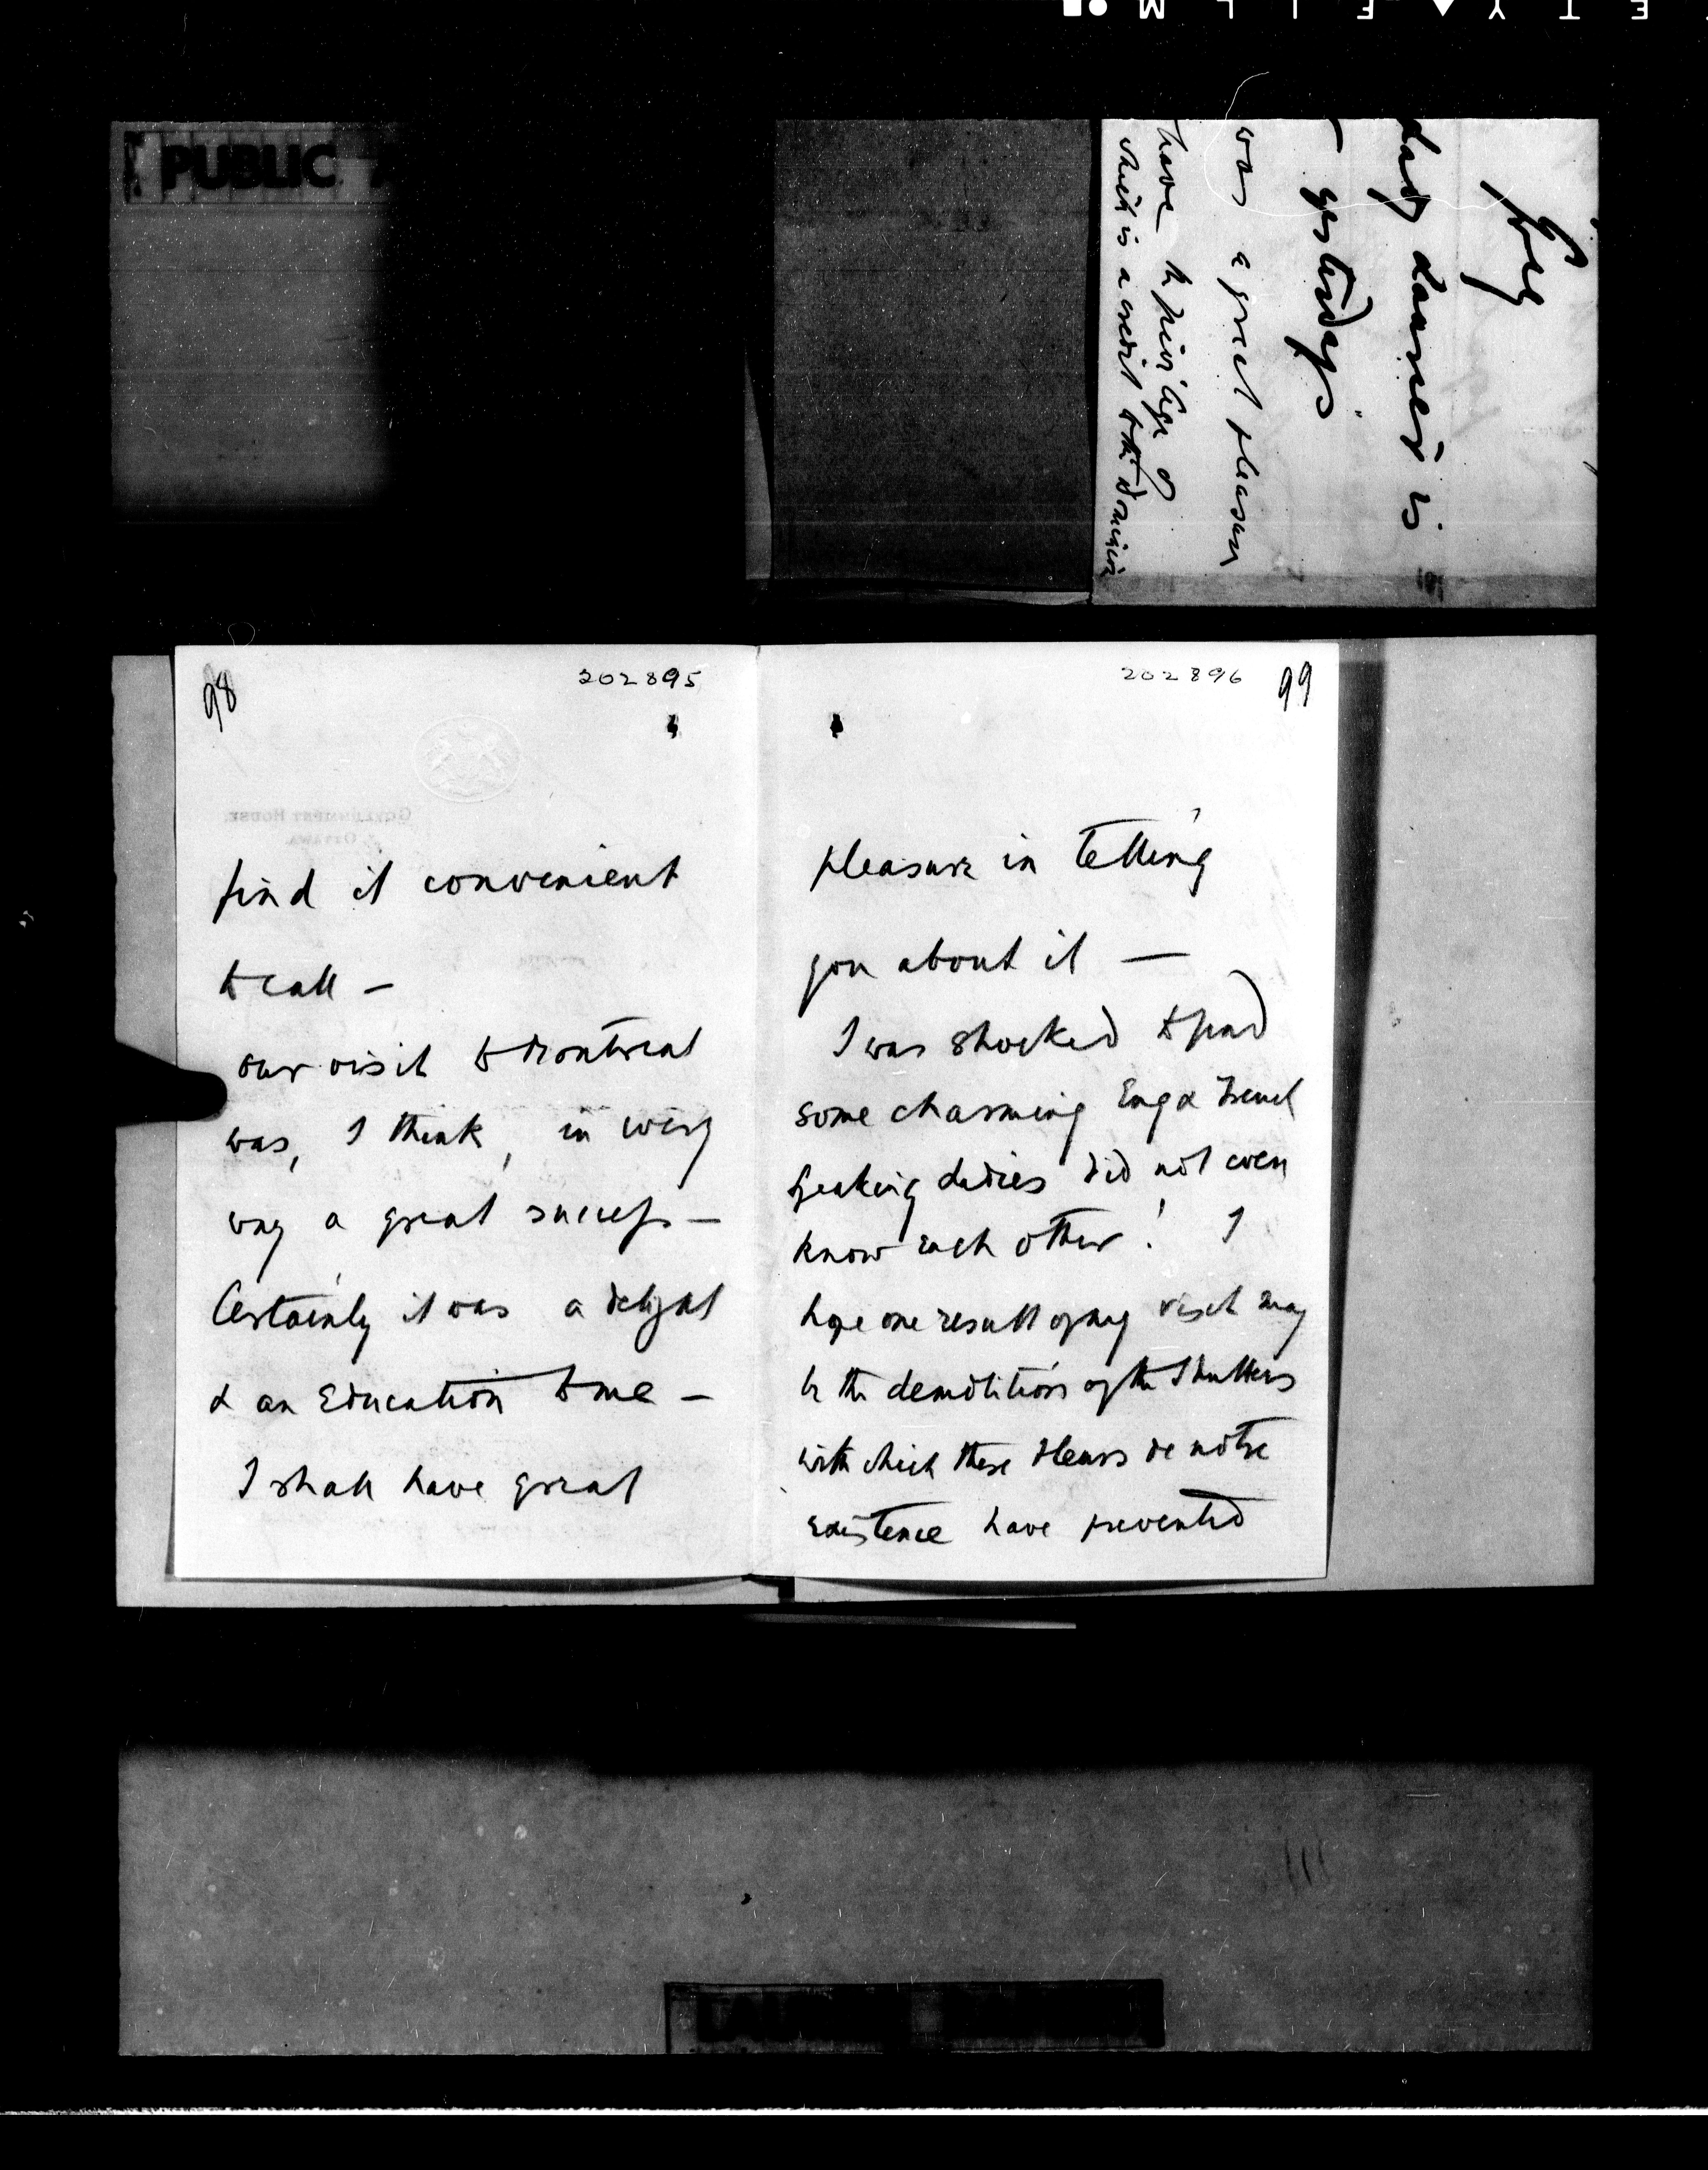 PUBLIC
Grey
day dancer is
yesterdays
was a great pleasure
have the privilege of
which is a credit to the Dominion
98
202895
GOVERNMENT HOUSE.
OTTAWA.
find it convenient
to call —
our visit to Montreal
was, I think, in every
way a great success —
Certainly it was a delight
& an Education to me —
I shall have great
202896
99
pleasure in telling
you about it —
I was shocked to find
some charming Eng & French
speaking ladies did not even
know each other! I
hope one result of my visit may
be the demolition of the Shutters
with which these fleurs de notre
existence have prevented